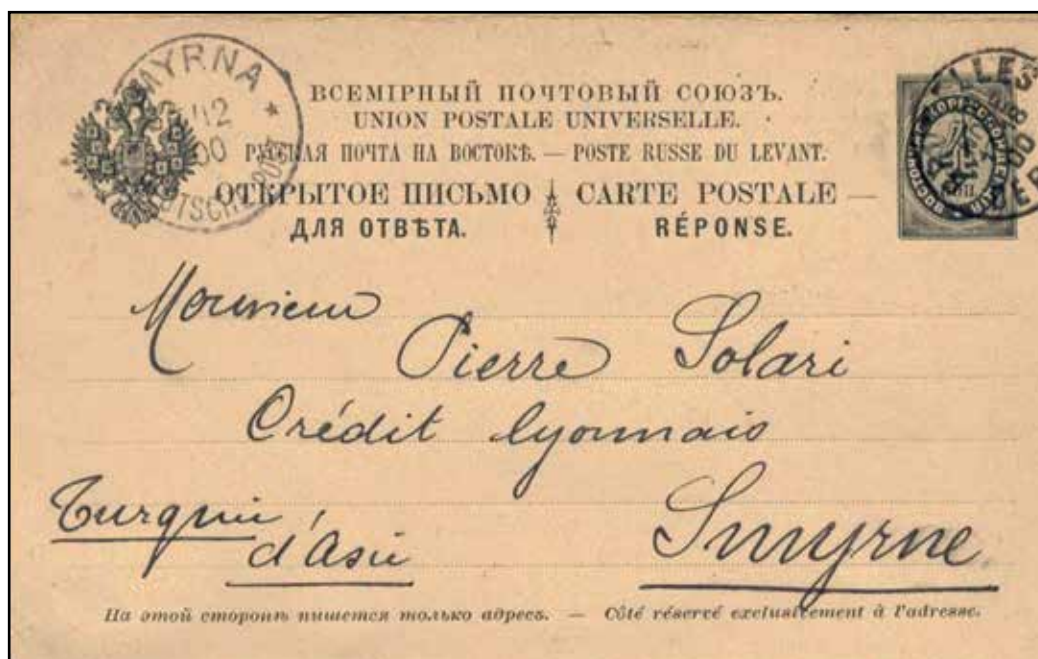 SMYRNA
12
00
DEUTSCHE POST
ВСЕМІРНЫЙ ПОЧТОВЫЙ СОЮЗЪ.
UNION POSTALE UNIVERSELLE.
РУССКАЯ ПОЧТА НА ВОСТОКѢ. — POSTE RUSSE DU LEVANT.
ОТКРЫТОЕ ПИСЬМО CARTE POSTALE —
ДЛЯ ОТВѢТА. RÉPONSE.
00
Monsieur
Pierre Solari
Crédit Lyonnais
Turquie
d'Asie
Smyrne
На этой сторонѣ пишется только адресъ. — Côté réservé exclusivement à l'adresse.